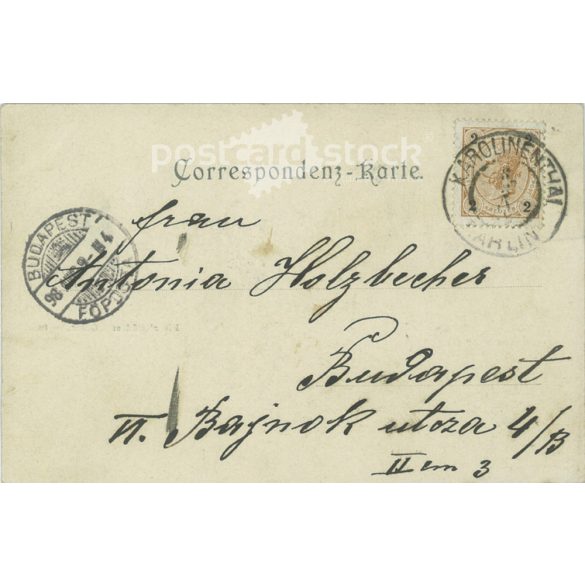 postcard stock
Correspondenz-Karte.
KAROLINENTHAL
KARLIN
2 2
2 2
BUDAPEST
FŐPOS
98
Frau
Antonia Holzbecher
Budapest
VI. Bajnok utcza 4/B
II em 3